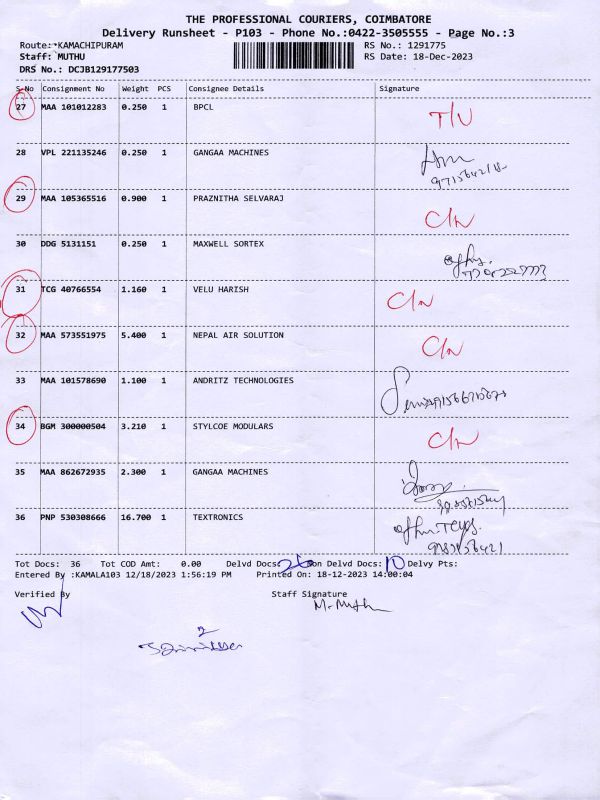 THE PROFESSIONAL COURIERS, COIMBATORE
Delivery Runsheet - P103 - Phone No.:0422-3505555 - Page No.:3
Route:*KAMACHIPURAM RS No.: 1291775
Staff: MUTHU RS Date: 18-Dec-2023
DRS No.: DCJB129177503
S-No Consignment No Weight PCS Consignee Details Signature
27 MAA 101012283 0.250 1 BPCL
28 VPL 221135246 0.250 1 GANGAA MACHINES
29 MAA 105365516 0.900 1 PRAZNITHA SELVARAJ C/N
30 DDG 5131151 0.250 1 MAXWELL SORTEX
31 TCG 40766554 1.160 1 VELU HARISH C/N
32 MAA 573551975 5.400 1 NEPAL AIR SOLUTION C/N
33 MAA 101578690 1.100 1 ANDRITZ TECHNOLOGIES
34 BGM 300000504 3.210 1 STYLCOE MODULARS C/N
35 MAA 862672935 2.300 1 GANGAA MACHINES
36 PNP 530308666 16.700 1 TEXTRONICS
Tot Docs: 36 Tot COD Amt: 0.00 Delvd Docs: 26 Non Delvd Docs: 10 Delvy Pts:
Entered By :KAMALA103 12/18/2023 1:56:19 PM Printed On: 18-12-2023 14:00:04
Verified By Staff Signature
M. Muthu